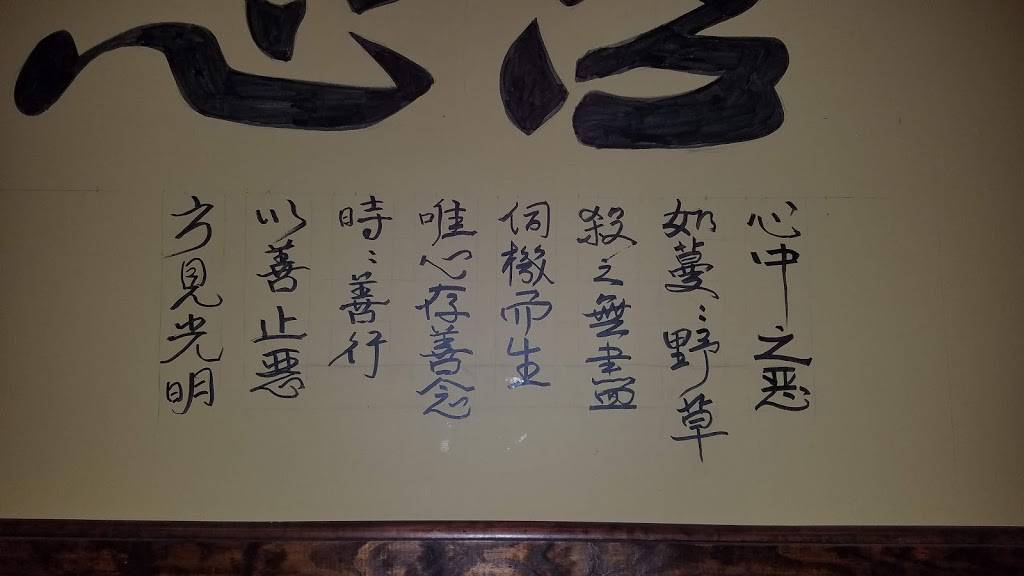 心中之惡
如蔓〻野草
殺之無盡
伺機而生
唯心存善念
時〻善行
以善止惡
方見光明